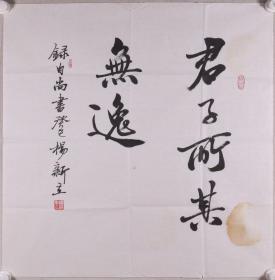 君子所其
無逸
録自尚書 癸巳 楊新立